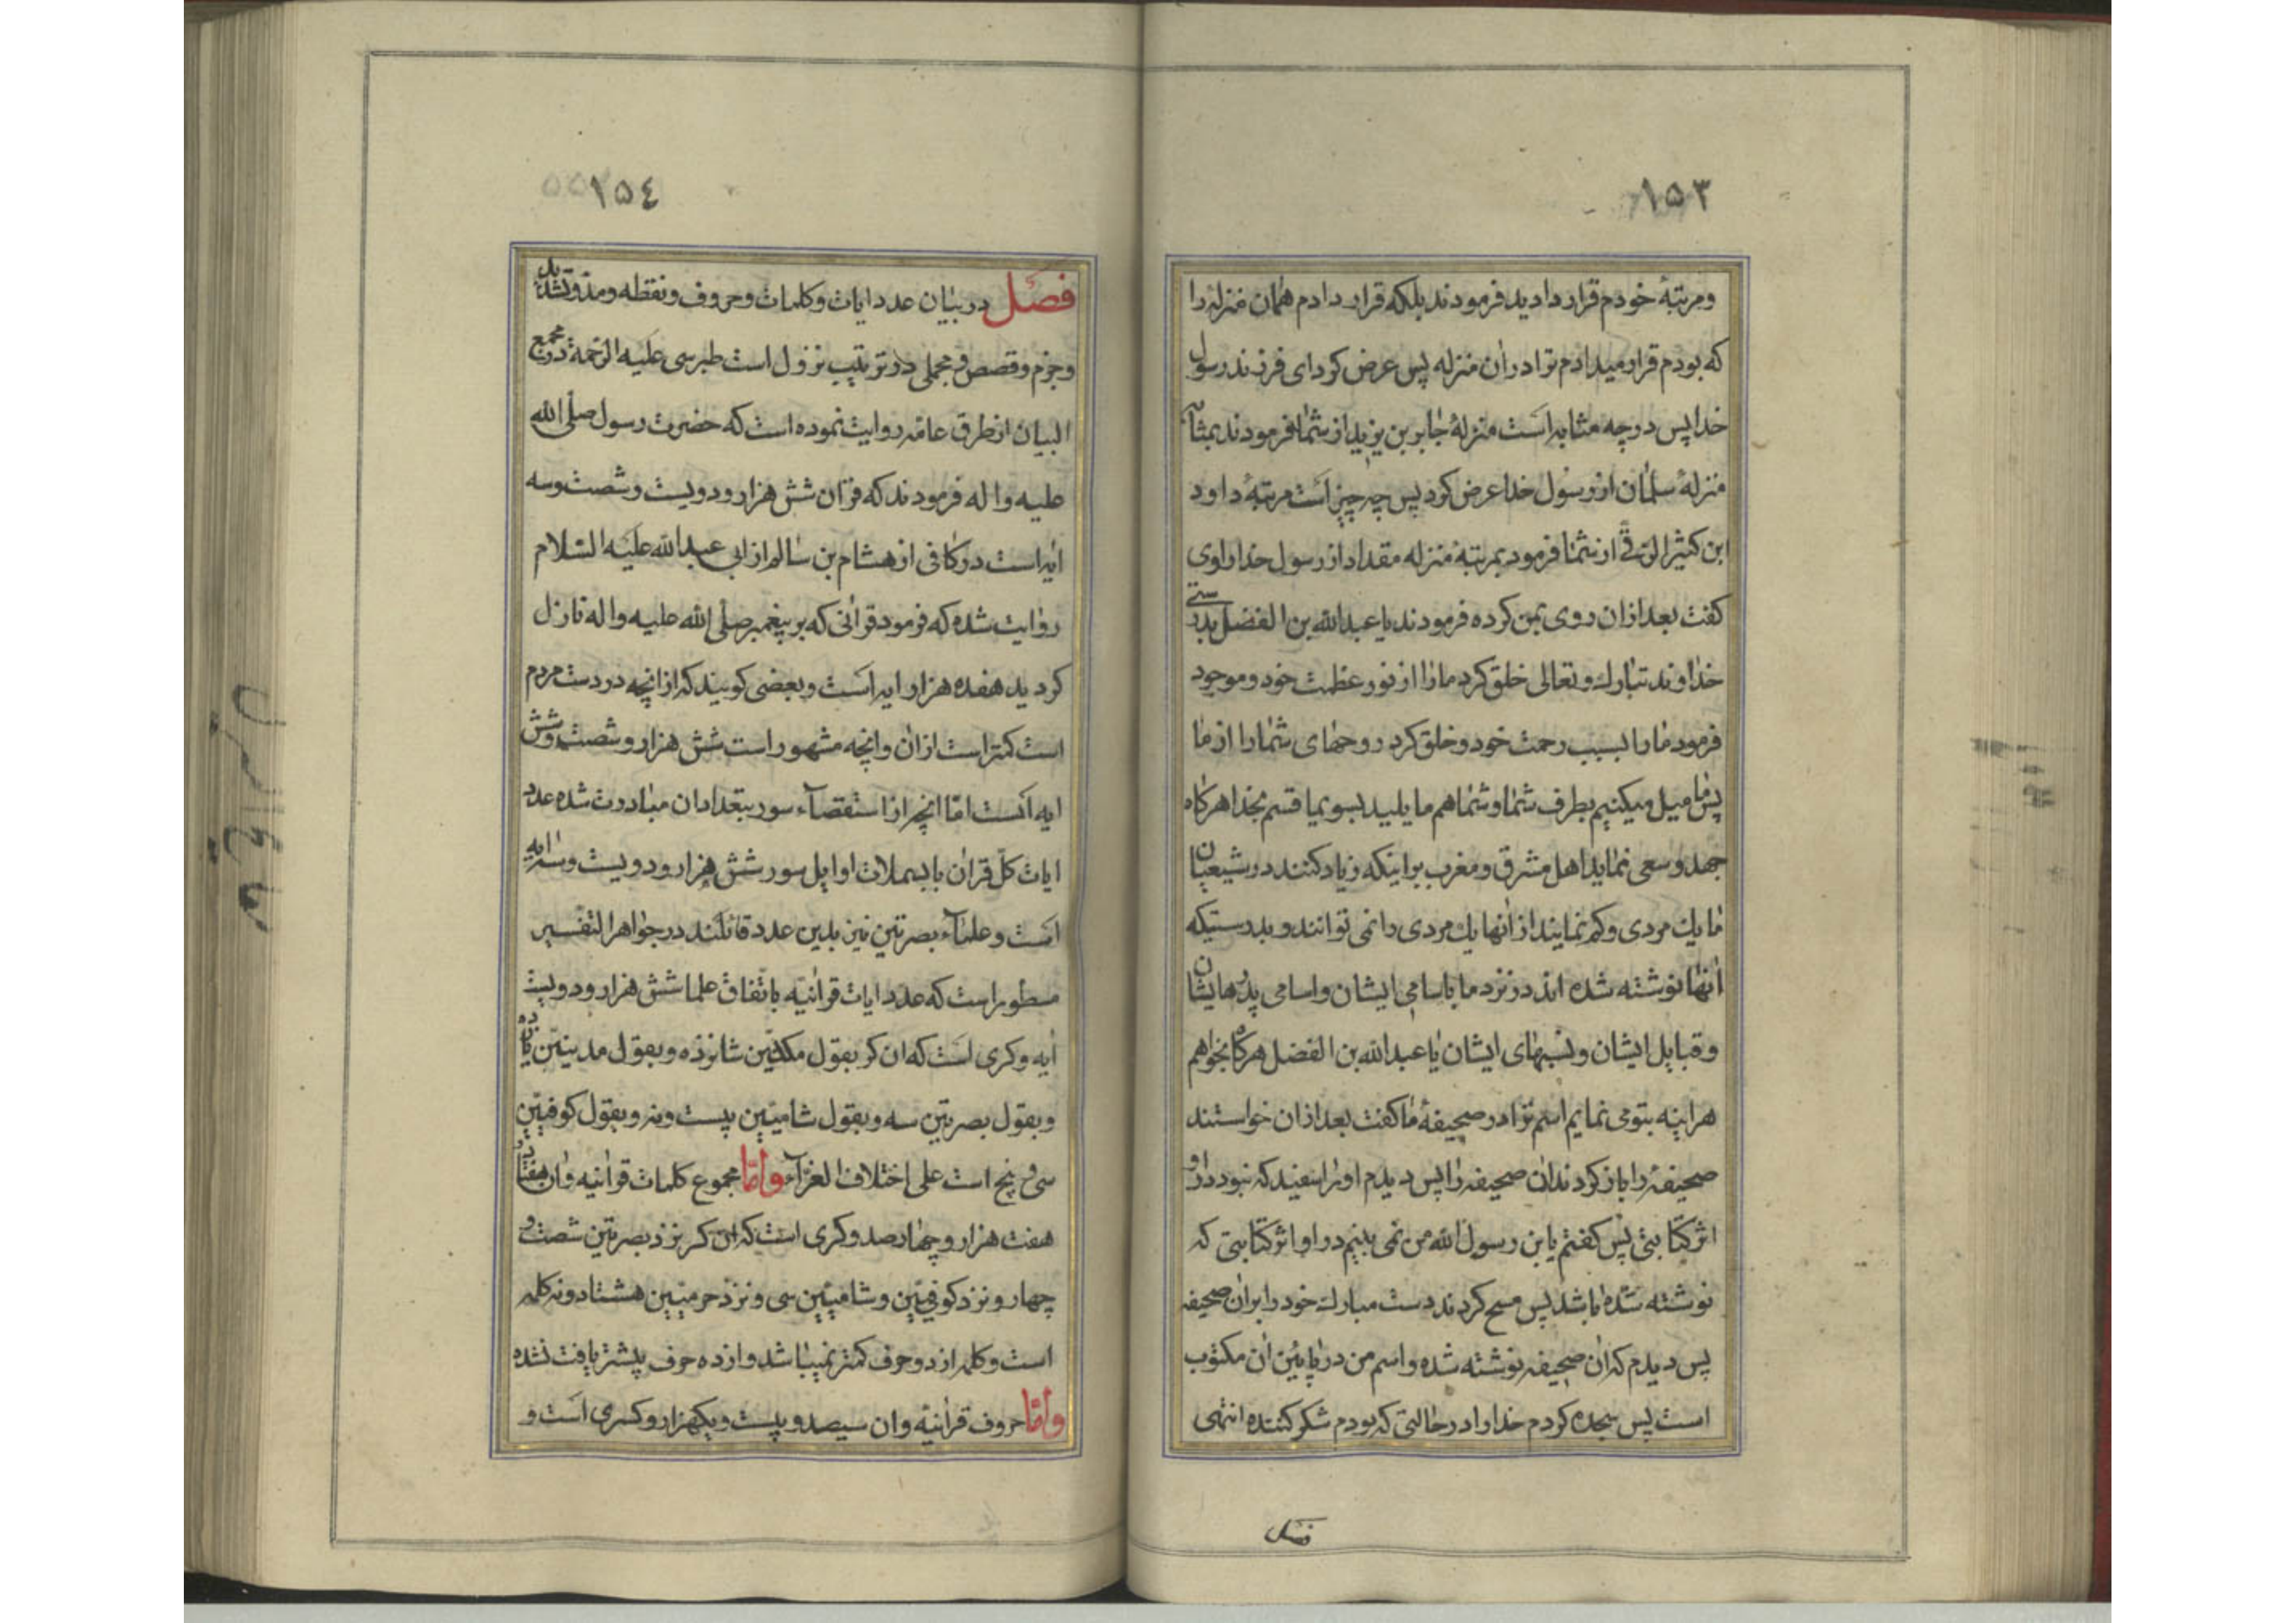 ۱۵۳
ومرتبهٔ خودم قرار دادید فرمودند بلکه قرار دادم همان منزله را
که بودم قرار میدادم ترا دران منزله پس عرض کرد ای فرزند رسول
خدا پس در چه مثابه است منزلهٔ جابر بن یزید از شما فرمودند بمثابه
منزلهٔ سلمان از رسول خدا عرض کرد پس چه چیز است مرتبهٔ داود
ابن کثیر الرقی از شما فرمود بمرتبهٔ منزله مقداد از رسول خدا راوی
کفت بعد ازان روی بمن کرده فرمودند یا عبدالله بن الفضل بدرستی
خداوند تبارك وتعالی خلق کرد ما را از نور عظمت خود و موجود
فرمود ما را بسبب رحمت خود و خلق کرد روحهای شما را از ما
پس ما میل میکنیم بطرف شما و شما هم مایلید بسوی ما قسم بخدا هرکاه
جهد و سعی نماید اهل مشرق و مغرب براینکه زیاد کنند در شیعیان
ما یك مردی و کم نمایند از آنها یك مردی را نمی توانند و بدرستیکه
آنها نوشته شده اند در نزد ما باسامی ایشان و اسامی پدرهایشان
و قبایل ایشان و نسبهای ایشان یا عبدالله بن الفضل هرکاه بخواهم
هراینه بتو می نمایم اسم ترا در صحیفهٔ ما کفت بعد ازان خواستند
صحیفه را باز کردند ان صحیفه را پس دیدم او را سفید که نبود در او
اثر کتابتی پس کفتم یابن رسول الله من نمی بینم در او اثر کتابتی که
نوشته شده باشد پس مسح کردند دست مبارك خود را بران صحیفه
پس دیدم که ان صحیفه نوشته شده و اسم من در پایین ان مکتوب
است پس سجده کردم خدا را در حالتی که بودم شکر کننده انتهی
فصل
۱۵٤
فصل در بیان عدد ایات و کلمات و حروف و نقطه و مد و تشدید
و جزم و قصص و مجملی در ترتیب نزول است طبرسی علیه الرحمة در مجمع
البیان از طرق عامه روایت نموده است که حضرت رسول صلی الله
علیه واله فرمودند که قران شش هزار و دویست و شصت و سه
ایه است در کافی از هشام بن سالم از ابی عبدالله علیه السلام
روایت شده که فرمود قرانی که بر پیغمبر صلی الله علیه واله نازل
کردید هفده هزار ایه است و بعضی کویند که از انچه در دست مردم
است کمتر است ازان و انچه مشهور است شش هزار و شصت و شش
ایه است امّا انچه از استقصاء سور بتعداد ان مبادرت شده عدد
ایات کلّ قران با بسملات اوایل سور شش هزار و دویست و سه ایه
است و علماء بصرتین نیز بدین عدد قائلند در جواهر التفسیر
مسطور است که عدد ایات قرانیه باتّفاق علما شش هزار و دویست
ایه و کری است که ان کر بقول مکیین شانزده و بقول مدینین یازده
و بقول بصرتین سه و بقول شامیین بیست و نه و بقول کوفیین
سی و پنج است علی اختلاف القراء وامّا مجموع کلمات قرانیه و ان هفتاد
هفت هزار و چهارصد و کری است که ان کر نزد بصرتین شصت و
چهار و نزد کوفیین و شامیین سی و نزد حرمیین هشتاد و نه کلمه
است و کلمه از دو حرف کمتر نمیباشد و از ده حرف بیشتر یافت نشده
وامّا حروف قرانیه و ان سیصد و بیست و یکهزار و کسری است و